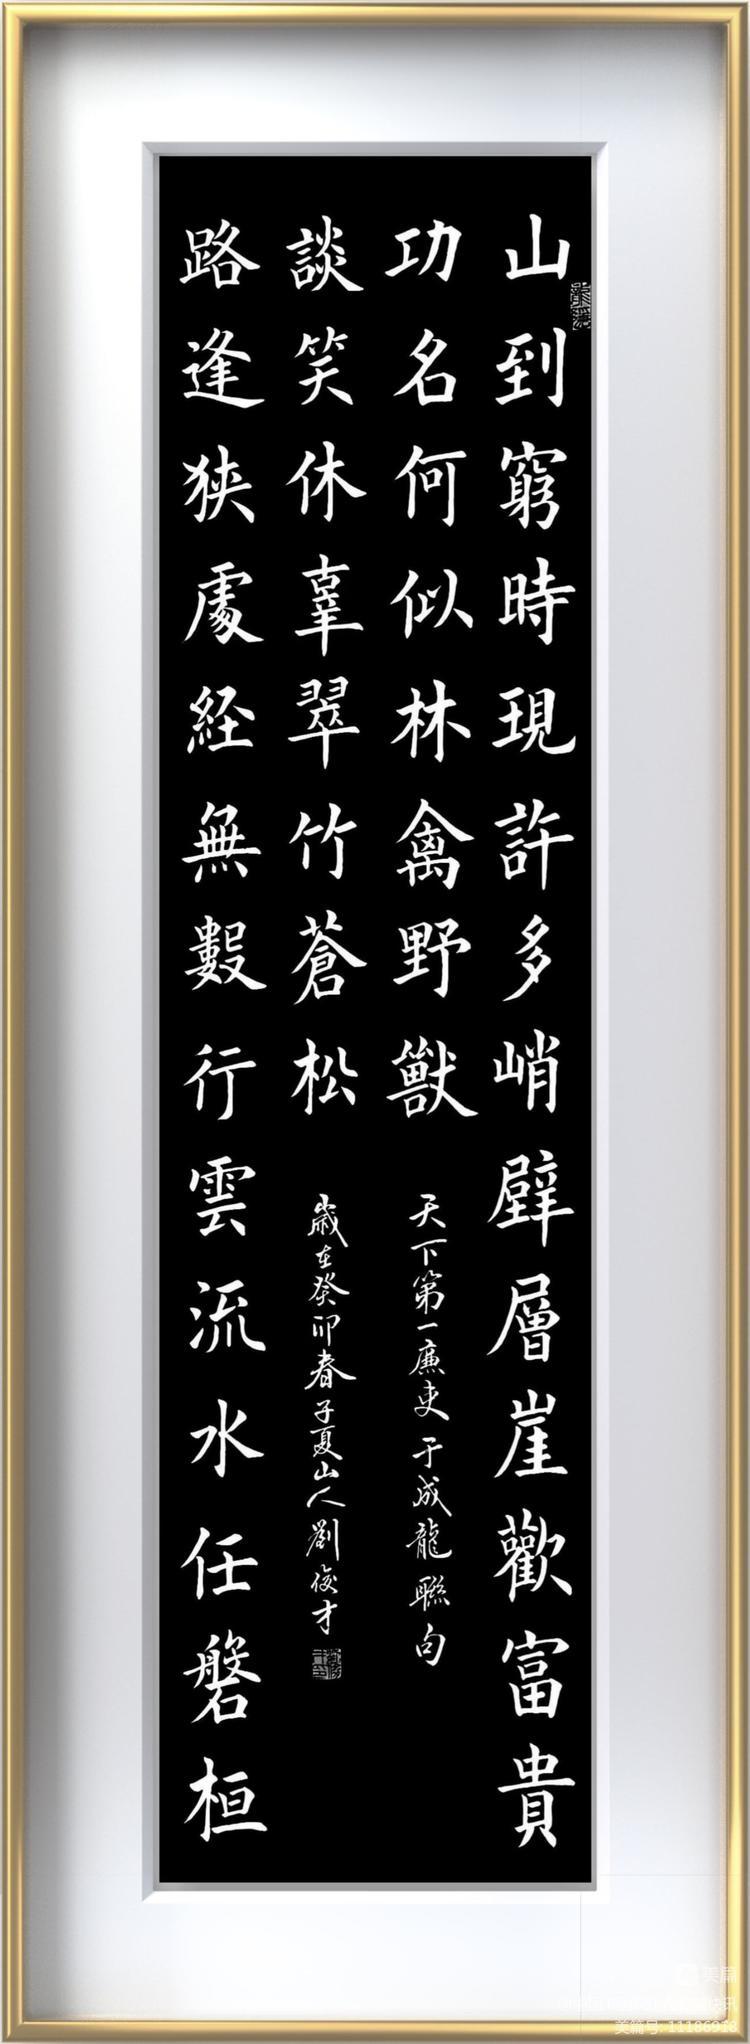 山到窮時現許多峭壁層崖歡富貴
功名何似林禽野獸
路逢狹處経無數行雲流水任磐桓
談笑休辜翠竹蒼松
天下第一廉吏于成龍聯句
歲在癸卯春子夏山人劉俊才
美篇
美篇号: 11186918